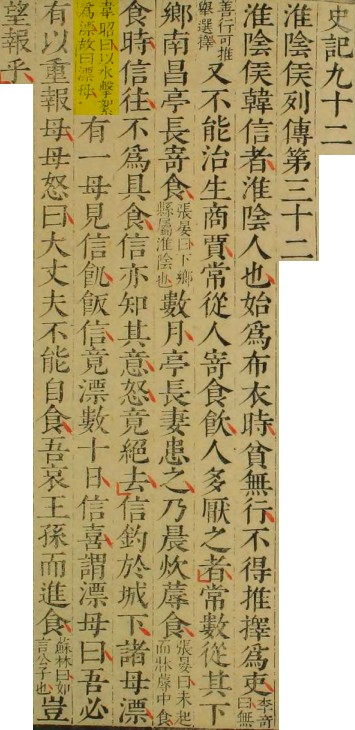 史記九十二
淮陰侯列傳第三十二
淮陰侯韓信者淮陰人也始爲布衣時貧無行不得推擇爲吏李奇曰無
善行可推舉選擇又不能治生商賈常從人寄食飲人多厭之者常數從其下
鄉南昌亭長寄食張晏曰下鄉縣屬淮陰也數月亭長妻患之乃晨炊蓐食張晏曰未起而牀蓐中食
食時信往不爲具食信亦知其意怒竟絕去信釣於城下諸母漂
韋昭曰以水擊絮爲漂故曰漂母有一母見信飢飯信竟漂數十日信喜謂漂母曰吾必
有以重報母母怒曰大丈夫不能自食吾哀王孫而進食蘇林曰如言公子也豈
望報乎